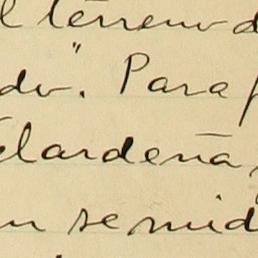 l terreno d
dv". Para f
elardeña,
n semid